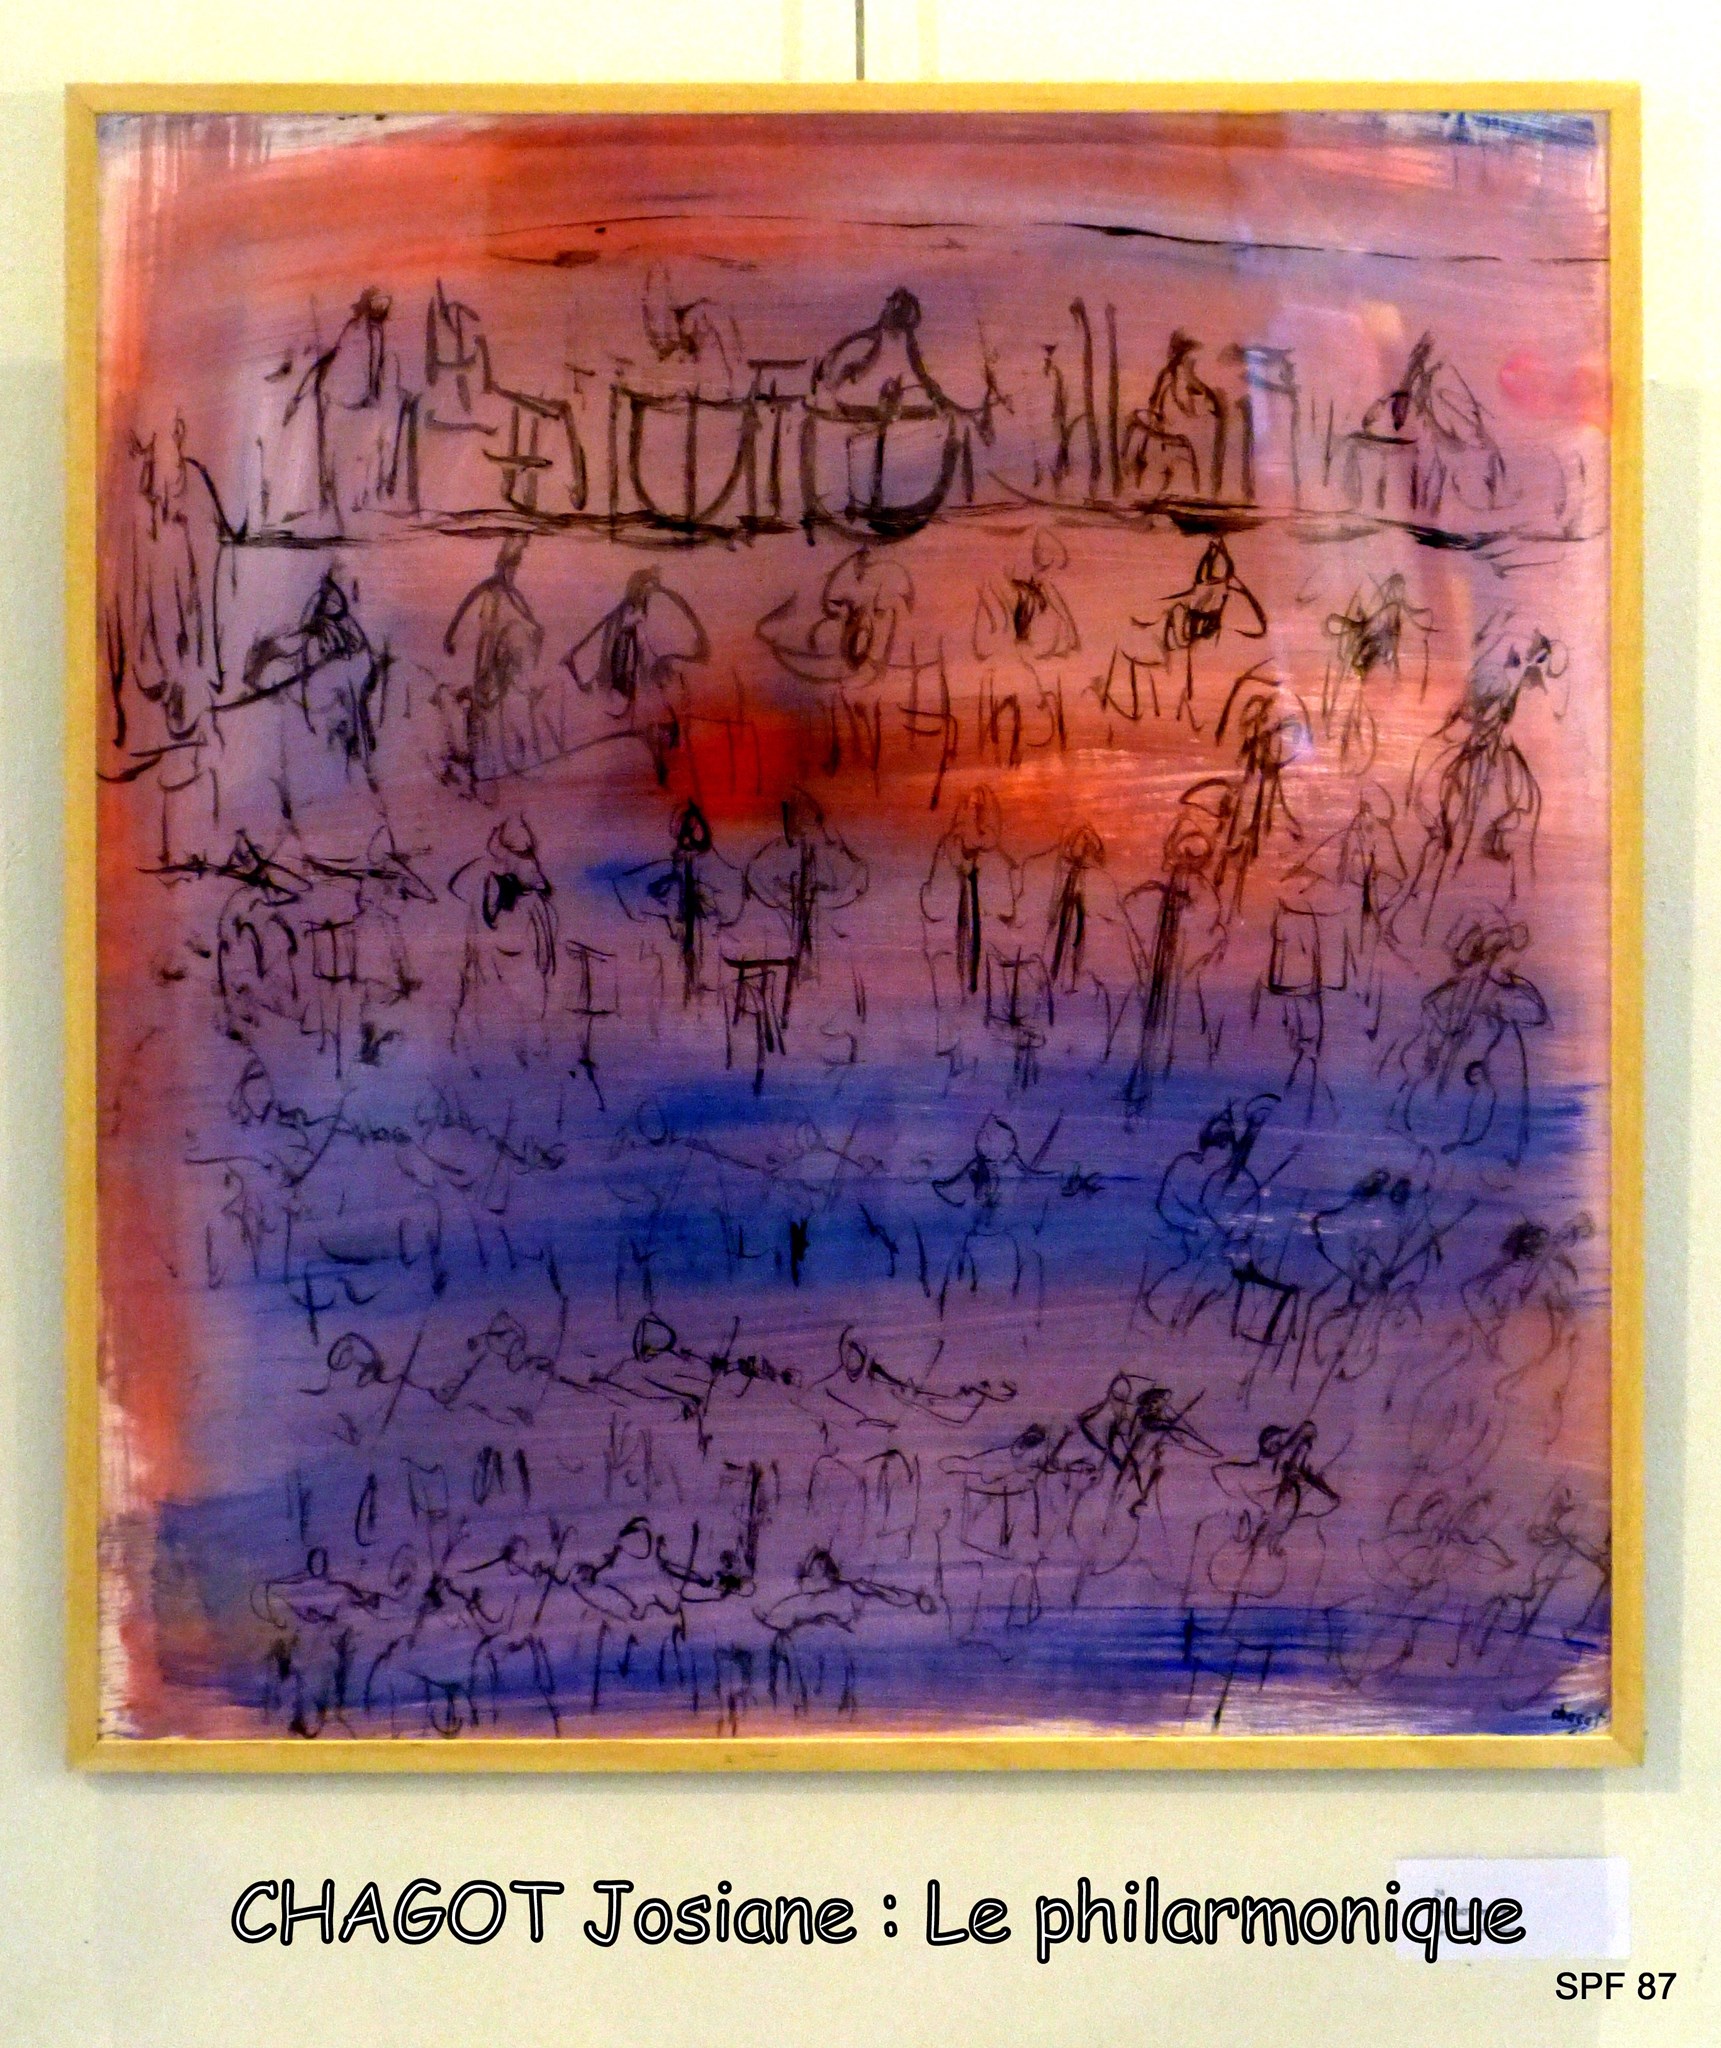 chagot
CHAGOT Josiane : Le philarmonique
SPF 87